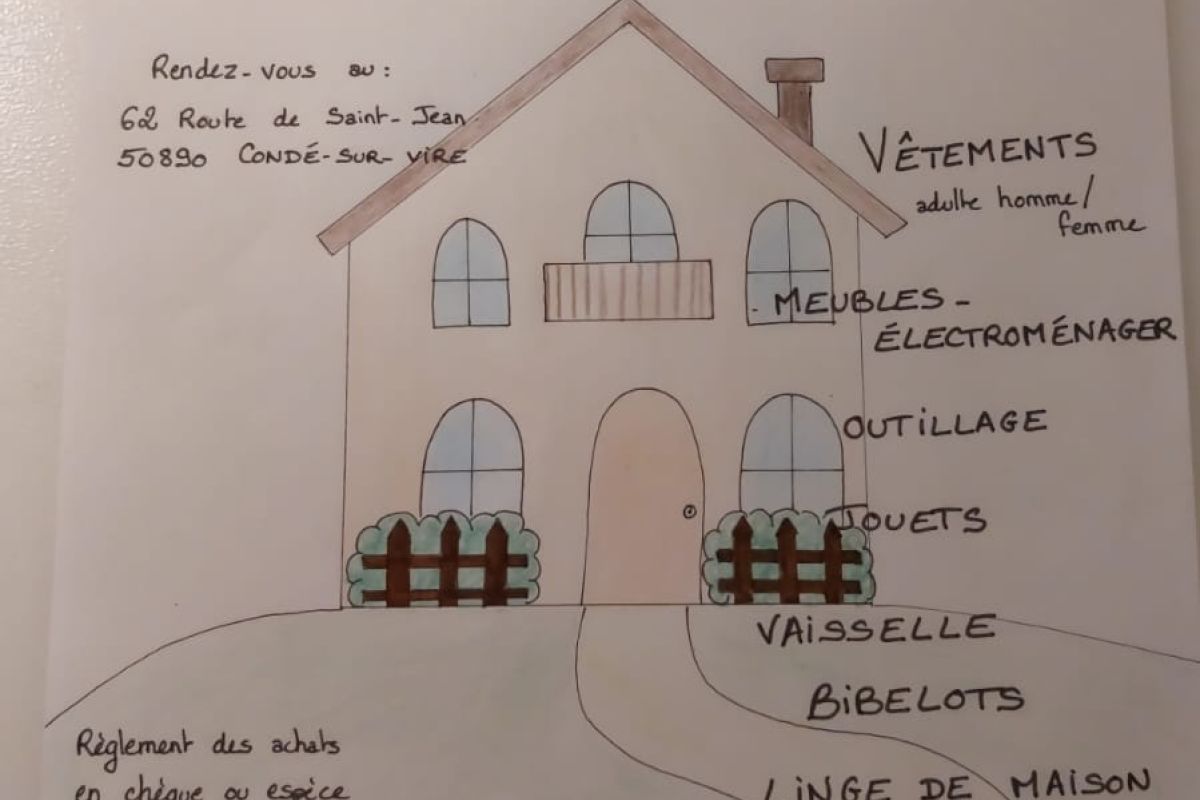 Rendez-vous au :
62 Route de Saint-Jean
50890 CONDÉ-SUR-VIRE
VÊTEMENTS
adulte homme/
femme
- MEUBLES -
ÉLECTROMÉNAGER
OUTILLAGE
JOUETS
VAISSELLE
BIBELOTS
LINGE DE MAISON
Règlement des achats
en chèque ou espèce